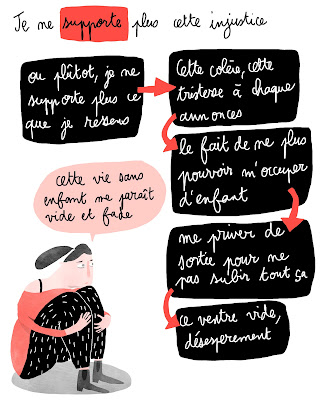 Je ne supporte plus cette injustice
ou plûtot, je ne
supporte plus ce
que je ressens
Cette colère, cette
tristesse à chaque
annonces
le fait de ne plus
pouvoir m'occuper
d'enfant
me priver de
sortie pour ne
pas subir tout ça
ce ventre vide,
désespérement
cette vie sans
enfant me paraît
vide et fade